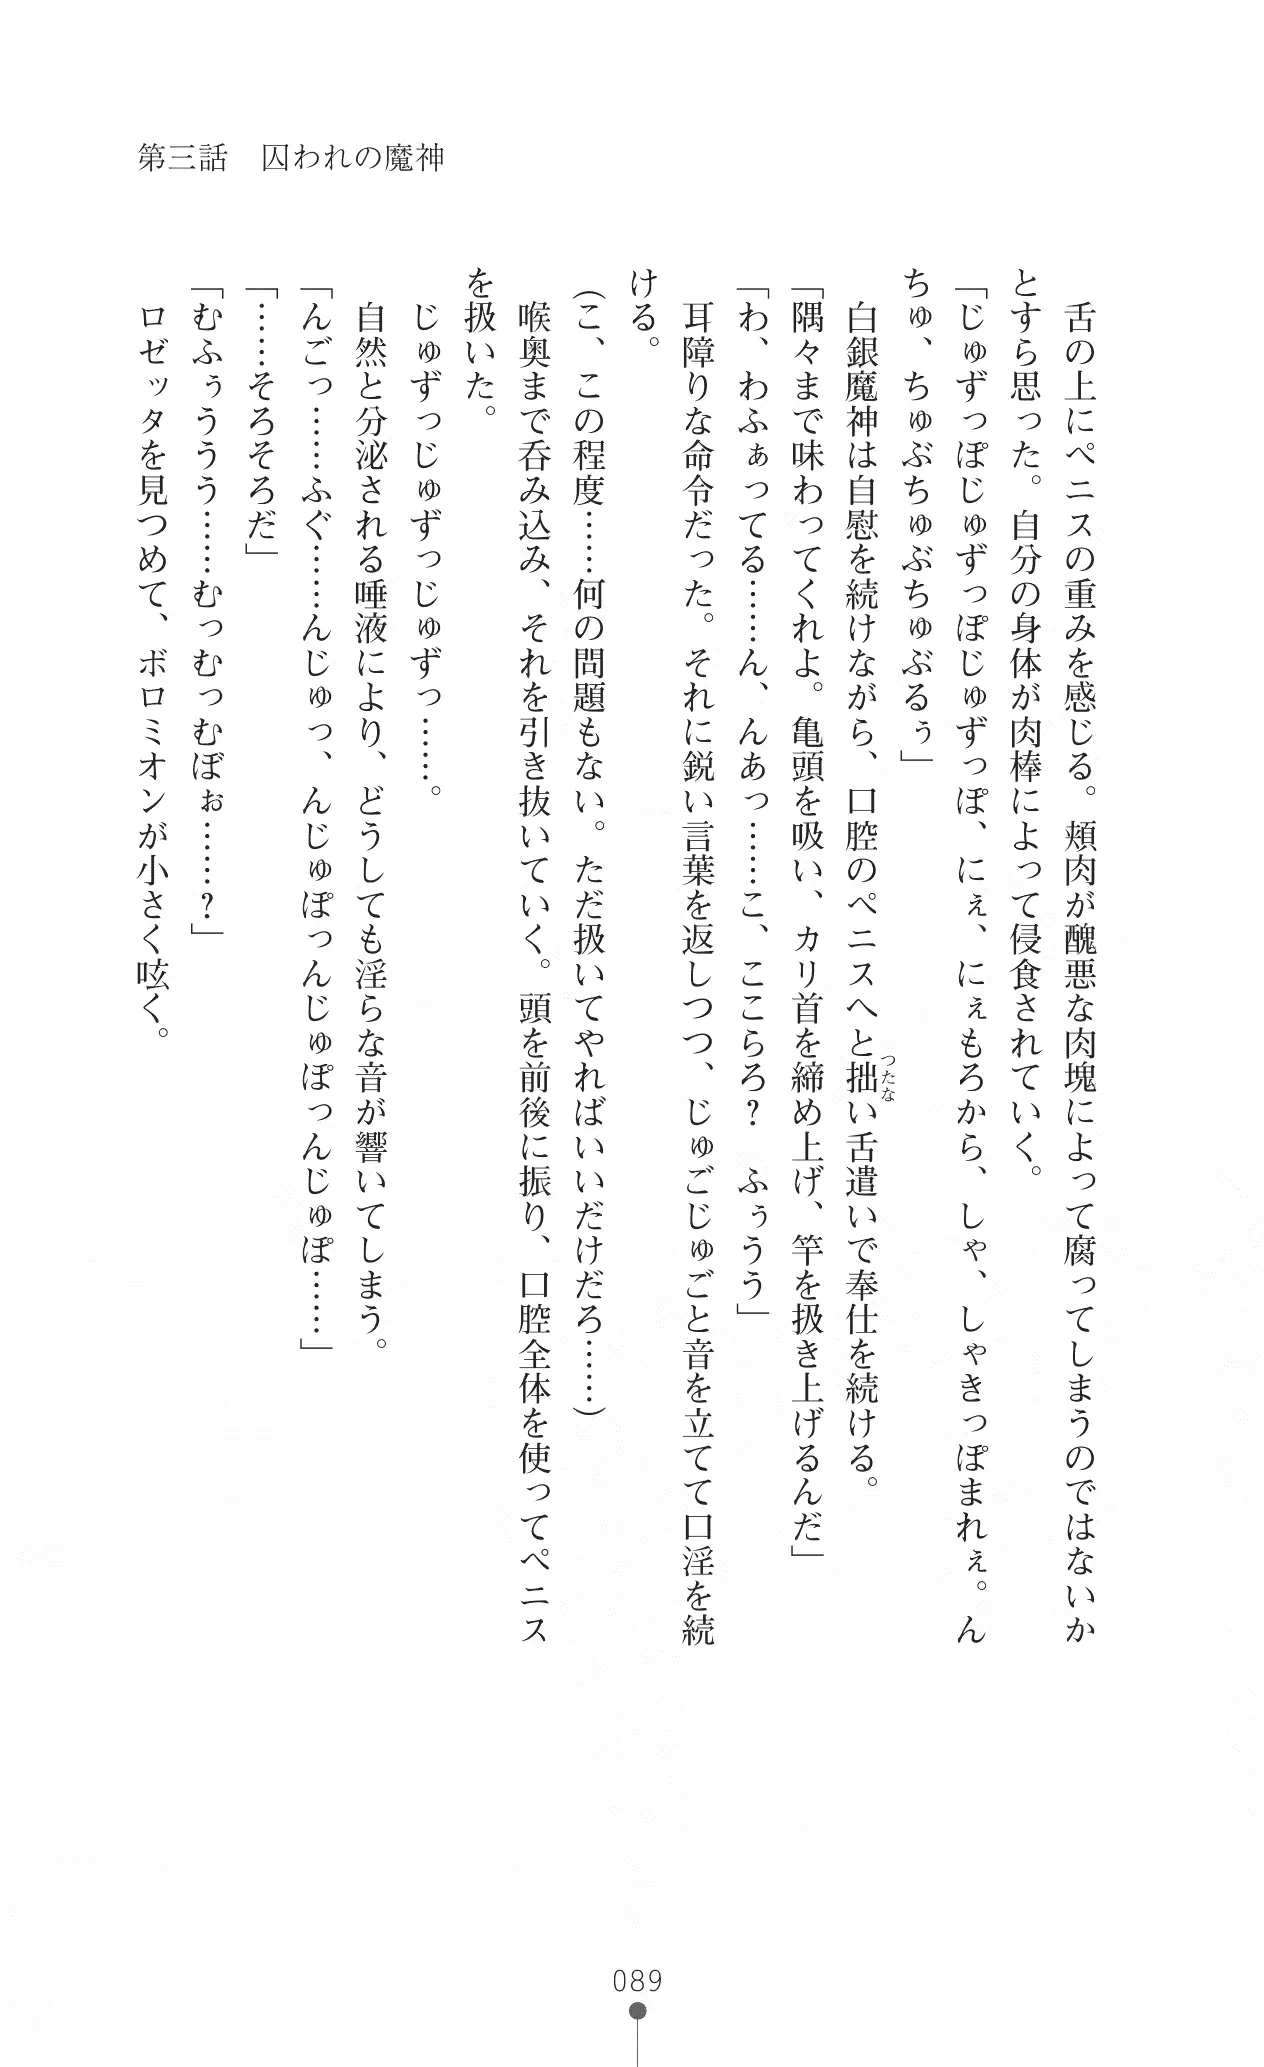 第三話　囚われの魔神
　舌の上にペニスの重みを感じる。頬肉が醜悪な肉塊によって腐ってしまうのではないか
とすら思った。自分の身体が肉棒によって侵食されていく。
「じゅずっぽじゅずっぽじゅずっぽ、にぇ、にぇもろから、しゃ、しゃきっぽまれぇ。ん
ちゅ、ちゅぶちゅぶちゅぶるぅ」
　白銀魔神は自慰を続けながら、口腔のペニスへと拙い舌遣いで奉仕を続ける。
つたな
「隅々まで味わってくれよ。亀頭を吸い、カリ首を締め上げ、竿を扱き上げるんだ」
「わ、わふぁってる……ん、んあっ……こ、ここらろ？　ふぅうう」
　耳障りな命令だった。それに鋭い言葉を返しつつ、じゅごじゅごと音を立てて口淫を続
ける。
（こ、この程度……何の問題もない。ただ扱いてやればいいだけだろ……）
　喉奥まで呑み込み、それを引き抜いていく。頭を前後に振り、口腔全体を使ってペニス
を扱いた。
　じゅずっじゅずっじゅずっ……。
　自然と分泌される唾液により、どうしても淫らな音が響いてしまう。
「んごっ……ふぐ……んじゅっ、んじゅぽっんじゅぽっんじゅぽ……」
「……そろそろだ」
「むふぅううう……むっむっむぼぉ……？」
　ロゼッタを見つめて、ボロミオンが小さく呟く。
089